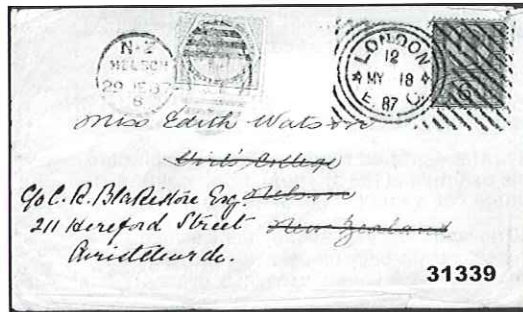 N·Z
NELSON
29 JE 87
6
LONDON
12
MY 18
E.C
87
6
Miss Edith Watson
Girls College
c/o C. R. Blakiston Esq Nelson
211 Hereford Street New Zealand
Christchurch.
31339